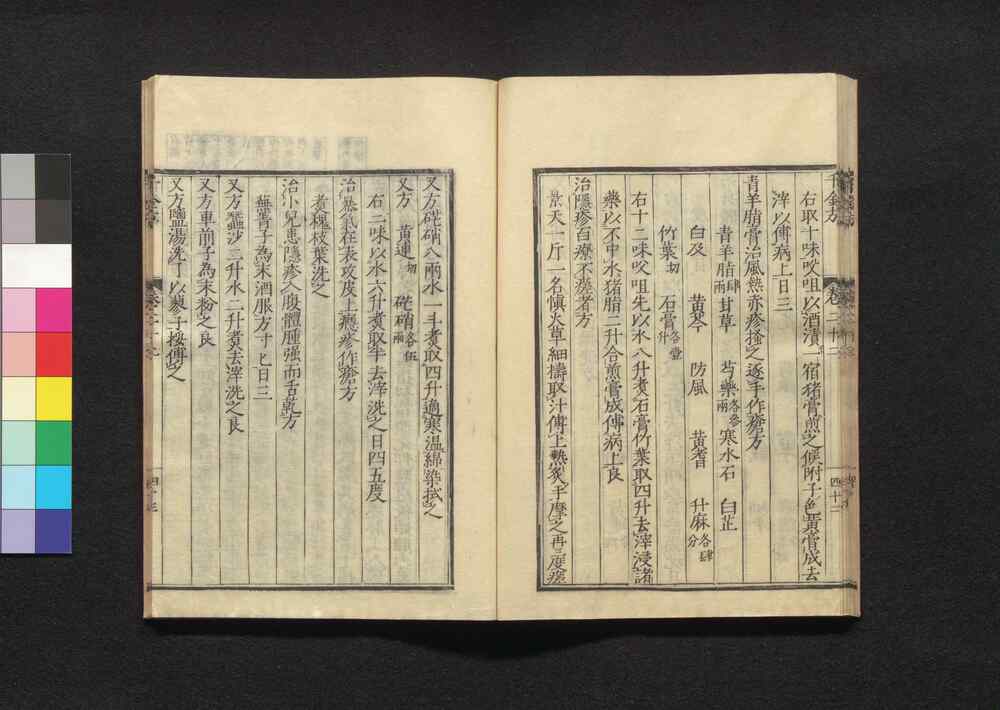 右取十味㕮咀以酒漬一宿猪膏煎之候附子色黃膏成去
滓以傅病上日三
青羊脂膏治風熱赤疹搔之逐手作瘡方
青羊脂肆兩 甘草 芍藥各參兩 寒水石 白芷
白及 黃芩 防風 黃耆 升麻各肆分
竹葉切 石膏各壹升
右十二味㕮咀先以水八升煮石膏竹葉取四升去滓浸諸
藥以不中水猪脂二升合煎膏成傅病上良
治隱疹百療不瘥者方
景天一斤一名慎火草細擣取汁傅上熱炙手摩之再三度瘥
又方硭硝八兩水一斗煮取四升適寒溫綿染拭之
又方 黃連切 硭硝各伍兩
右二味以水六升煮取半去滓洗之日四五度
治暴氣在表攻皮上癮疹作瘡方
煮槐枝葉洗之
治小兒患隱疹入腹體腫强而舌乾方
蕪菁子為末酒服方寸匕日三
又方蠶沙二升水二升煮去滓洗之良
又方車前子為末粉之良
又方鹽湯洗了以蓼子挼傅之